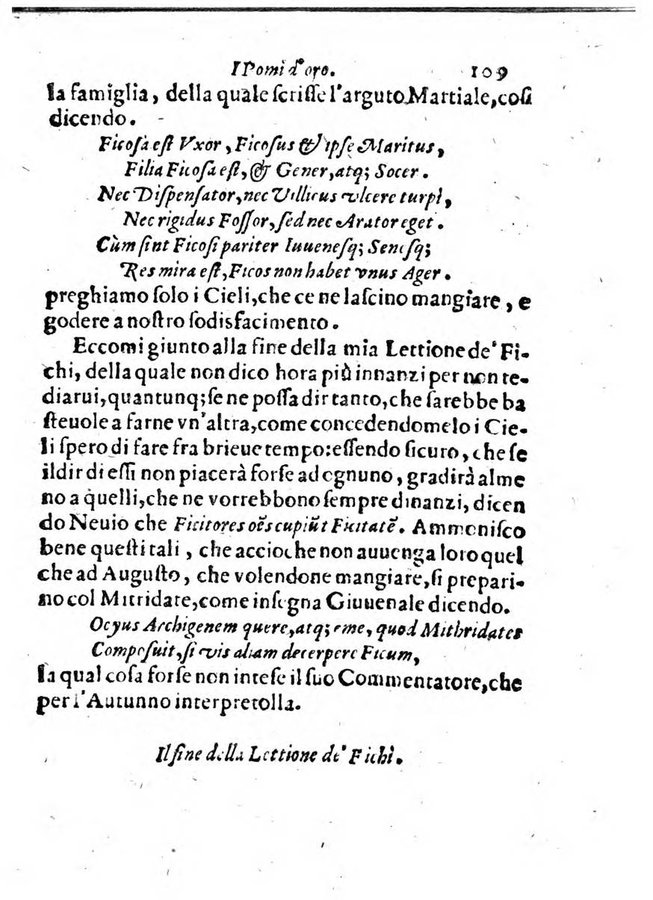 I Pomi d'oro. 109
la famiglia, della quale ſcriſſe l'arguto Martiale, coſi
dicendo.
Ficoſa eſt Vxor, Ficoſus & ipſe Maritus,
Filia Ficoſa eſt, & Gener, atq; Socer.
Nec Diſpenſator, nec Villicus vlcere turpi,
Nec rigidus Foſſor, ſed nec Arator eget.
Cùm ſint Ficoſi pariter Iuueneſq; Seneſq;
Res mira eſt, Ficos non habet vnus Ager.
preghiamo ſolo i Cieli, che ce ne laſcino mangiare, e
godere a noſtro ſodisfacimento.
Eccomi giunto alla fine della mia Lettione de' Fi-
chi, della quale non dico hora più innanzi per non te-
diarui, quantunq; ſe ne poſſa dir tanto, che ſarebbe ba
ſteuole a farne vn'altra, come concedendomelo i Cie-
li ſpero di fare fra brieue tempo: eſſendo ſicuro, che ſe
il dir di eſſi non piacerà forſe ad ognuno, gradirà alme
no a quelli, che ne vorrebbono ſempre dinanzi, dicen
do Neuio che Ficitores oẽs cupiũt Ficitatẽ. Ammoniſco
bene queſti tali, che accioche non auuenga loro quel
che ad Auguſto, che volendone mangiare, ſi prepari-
no col Mitridate, come inſegna Giuuenale dicendo.
Ocyus Archigenem quere, atq; eme, quod Mithridates
Compoſuit, ſi vis aliam decerpere Ficum,
la qual coſa forſe non inteſe il ſuo Commentatore, che
per l'Autunno interpretolla.
Il fine della Lettione de' Fichi.